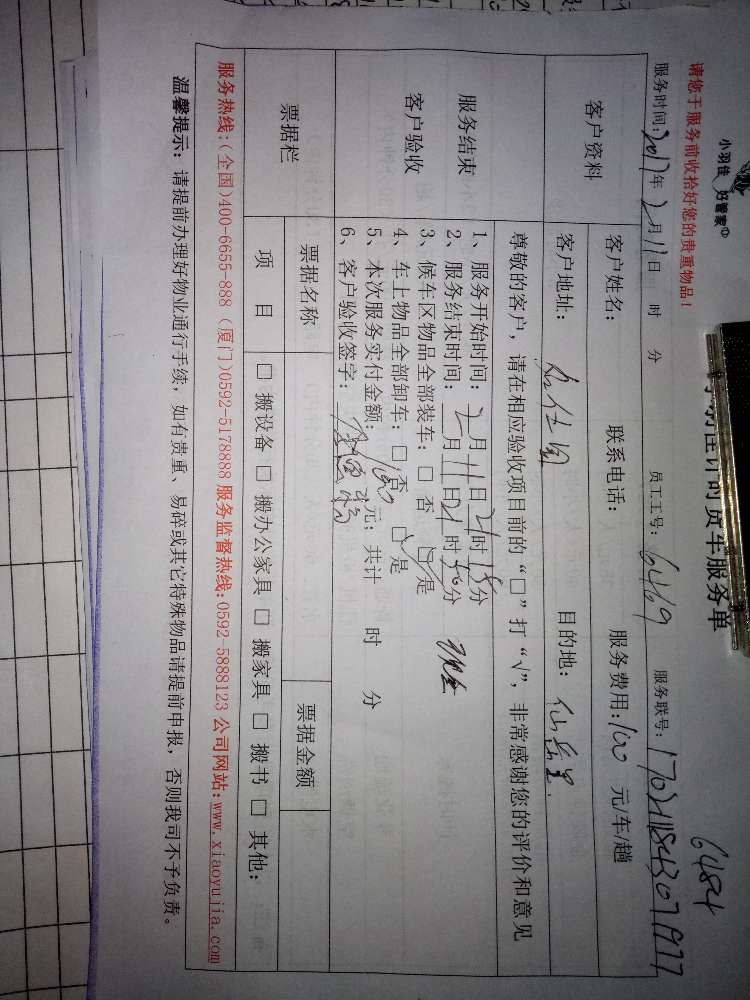 小羽佳 好管家
小羽佳计时货车服务单
6484
请您于服务前收拾好您的贵重物品!
服务时间:2017年2月11日 时 分 员工工号:6469 服务联号:
客户资料
客户姓名: 联系电话: 服务费用:100 元/车/趟
客户地址: 目的地:仙岳里.
服务结束
客户验收
尊敬的客户,请在相应验收项目前的“□”打“√”,非常感谢您的评价和意见
1、服务开始时间:2月11日21时15分
2、服务结束时间:2月11日21时40分 现金
3、候车区物品全部装车:□ 否 ☑是
4、车上物品全部卸车:□ 否 ☑是
5、本次服务实付金额:100元;共计 时 分
6、客户验收签字:
票据栏
票据名称 票据金额
项 目 □ 搬设备 □ 搬办公家具 □ 搬家具 □ 搬书 □ 其他:
服务热线:(全国)400-6655-888 (厦门)0592-5178888 服务监督热线:0592-5888123 公司网站:www.xiaoyujia.com
温馨提示: 请提前办理好物业通行手续,如有贵重、易碎或其它特殊物品请提前申报,否则我司不予负责。